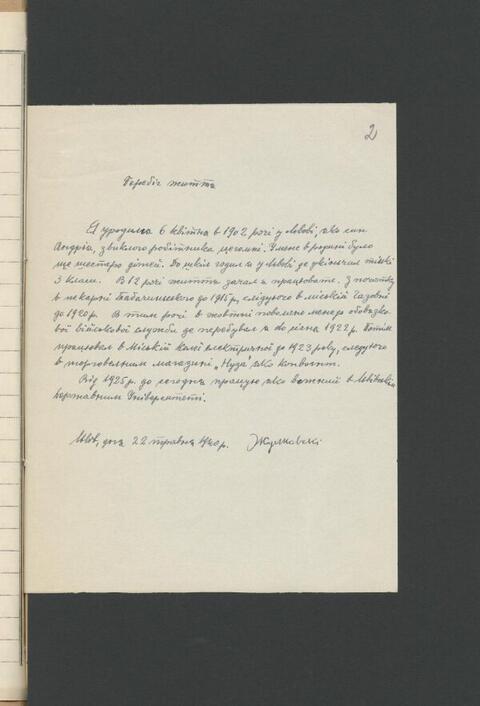 2
Перебіг життя
Я уродився 6 квітня в 1902 році у Львові, яко син
Андрія, звиклого робітника цегольні. У мене в родині було
ще шестеро дітей. До школи ходив я у Львові де укінчив тільки
3 класи. В 12 році життя зачав я працювати. З початку
в пекарні до 1915 р, слідуючо в міській Газовні
до 1920 р. В тим році в жовтні повелано мене до обовязко
вої військової служби де перебував я до 1922 р. Потім
працював в Міській колеї електричної до 1923 року, слідуючо
в торговельним магазині „Нуза" яко конвоєнт.
Від 1925 р. до сегодня працую яко возний в Львівським
Державним Університеті.
Львів, дня 22 травня 1940 р.